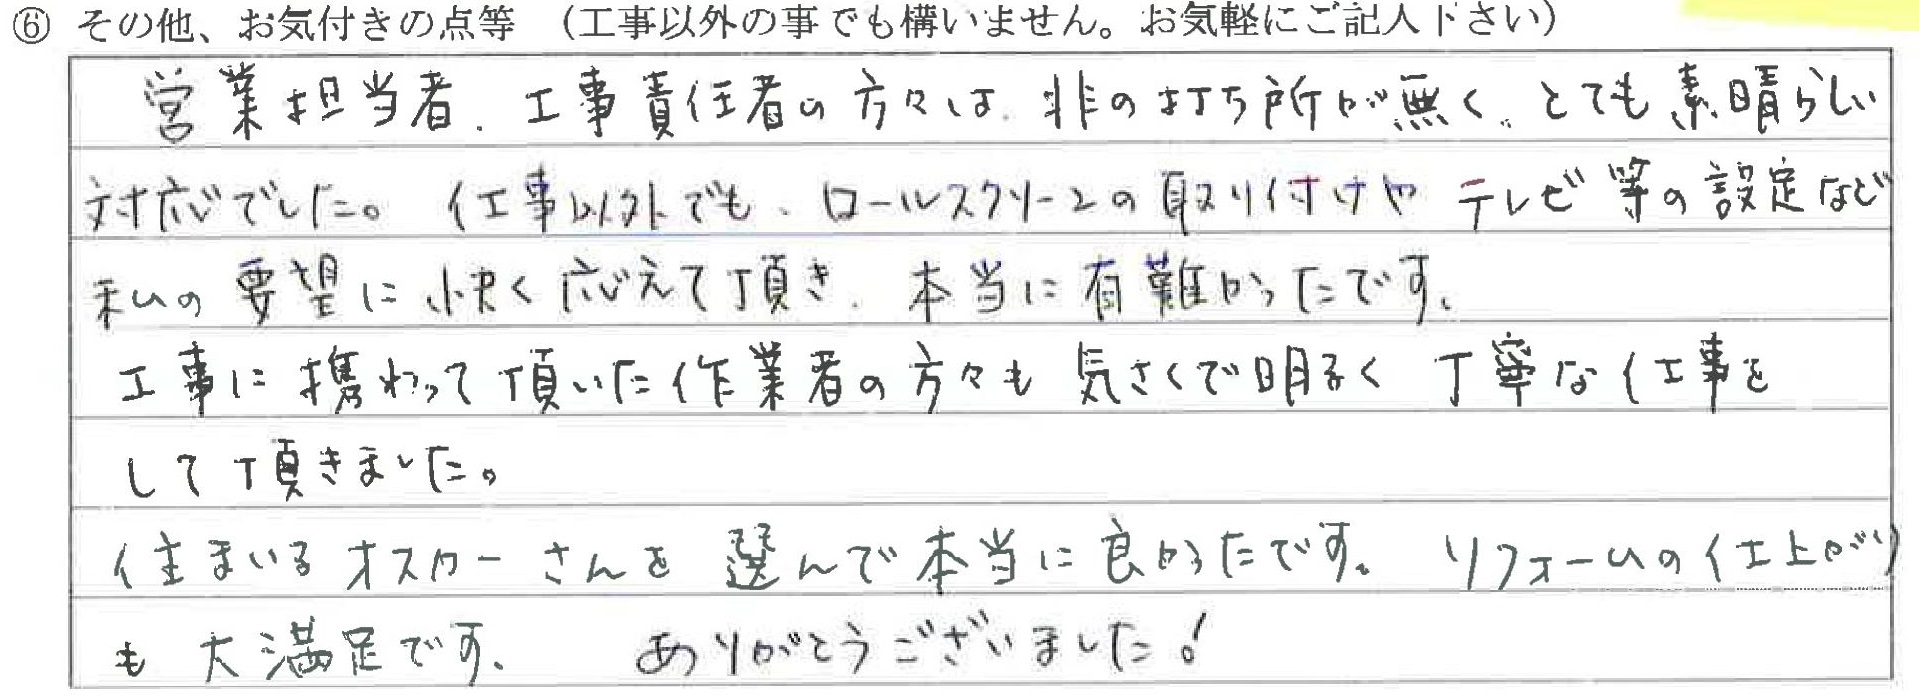 ⑥ その他、お気付きの点等 （工事以外の事でも構いません。お気軽にご記入下さい）
営業担当者、工事責任者の方々は、非の打ち所が無く、とても素晴らしい
対応でした。仕事以外でも、ロールスクリーンの取り付けや テレビ等の設定など
私の要望に快く応えて頂き、本当に有難かったです。
工事に携わって頂いた作業者の方々も 気さくで明るく 丁寧な仕事を
して頂きました。
住まいるオスカーさんを 選んで本当に良かったです。 リフォームの仕上がり
も 大満足です。 ありがとうございました！